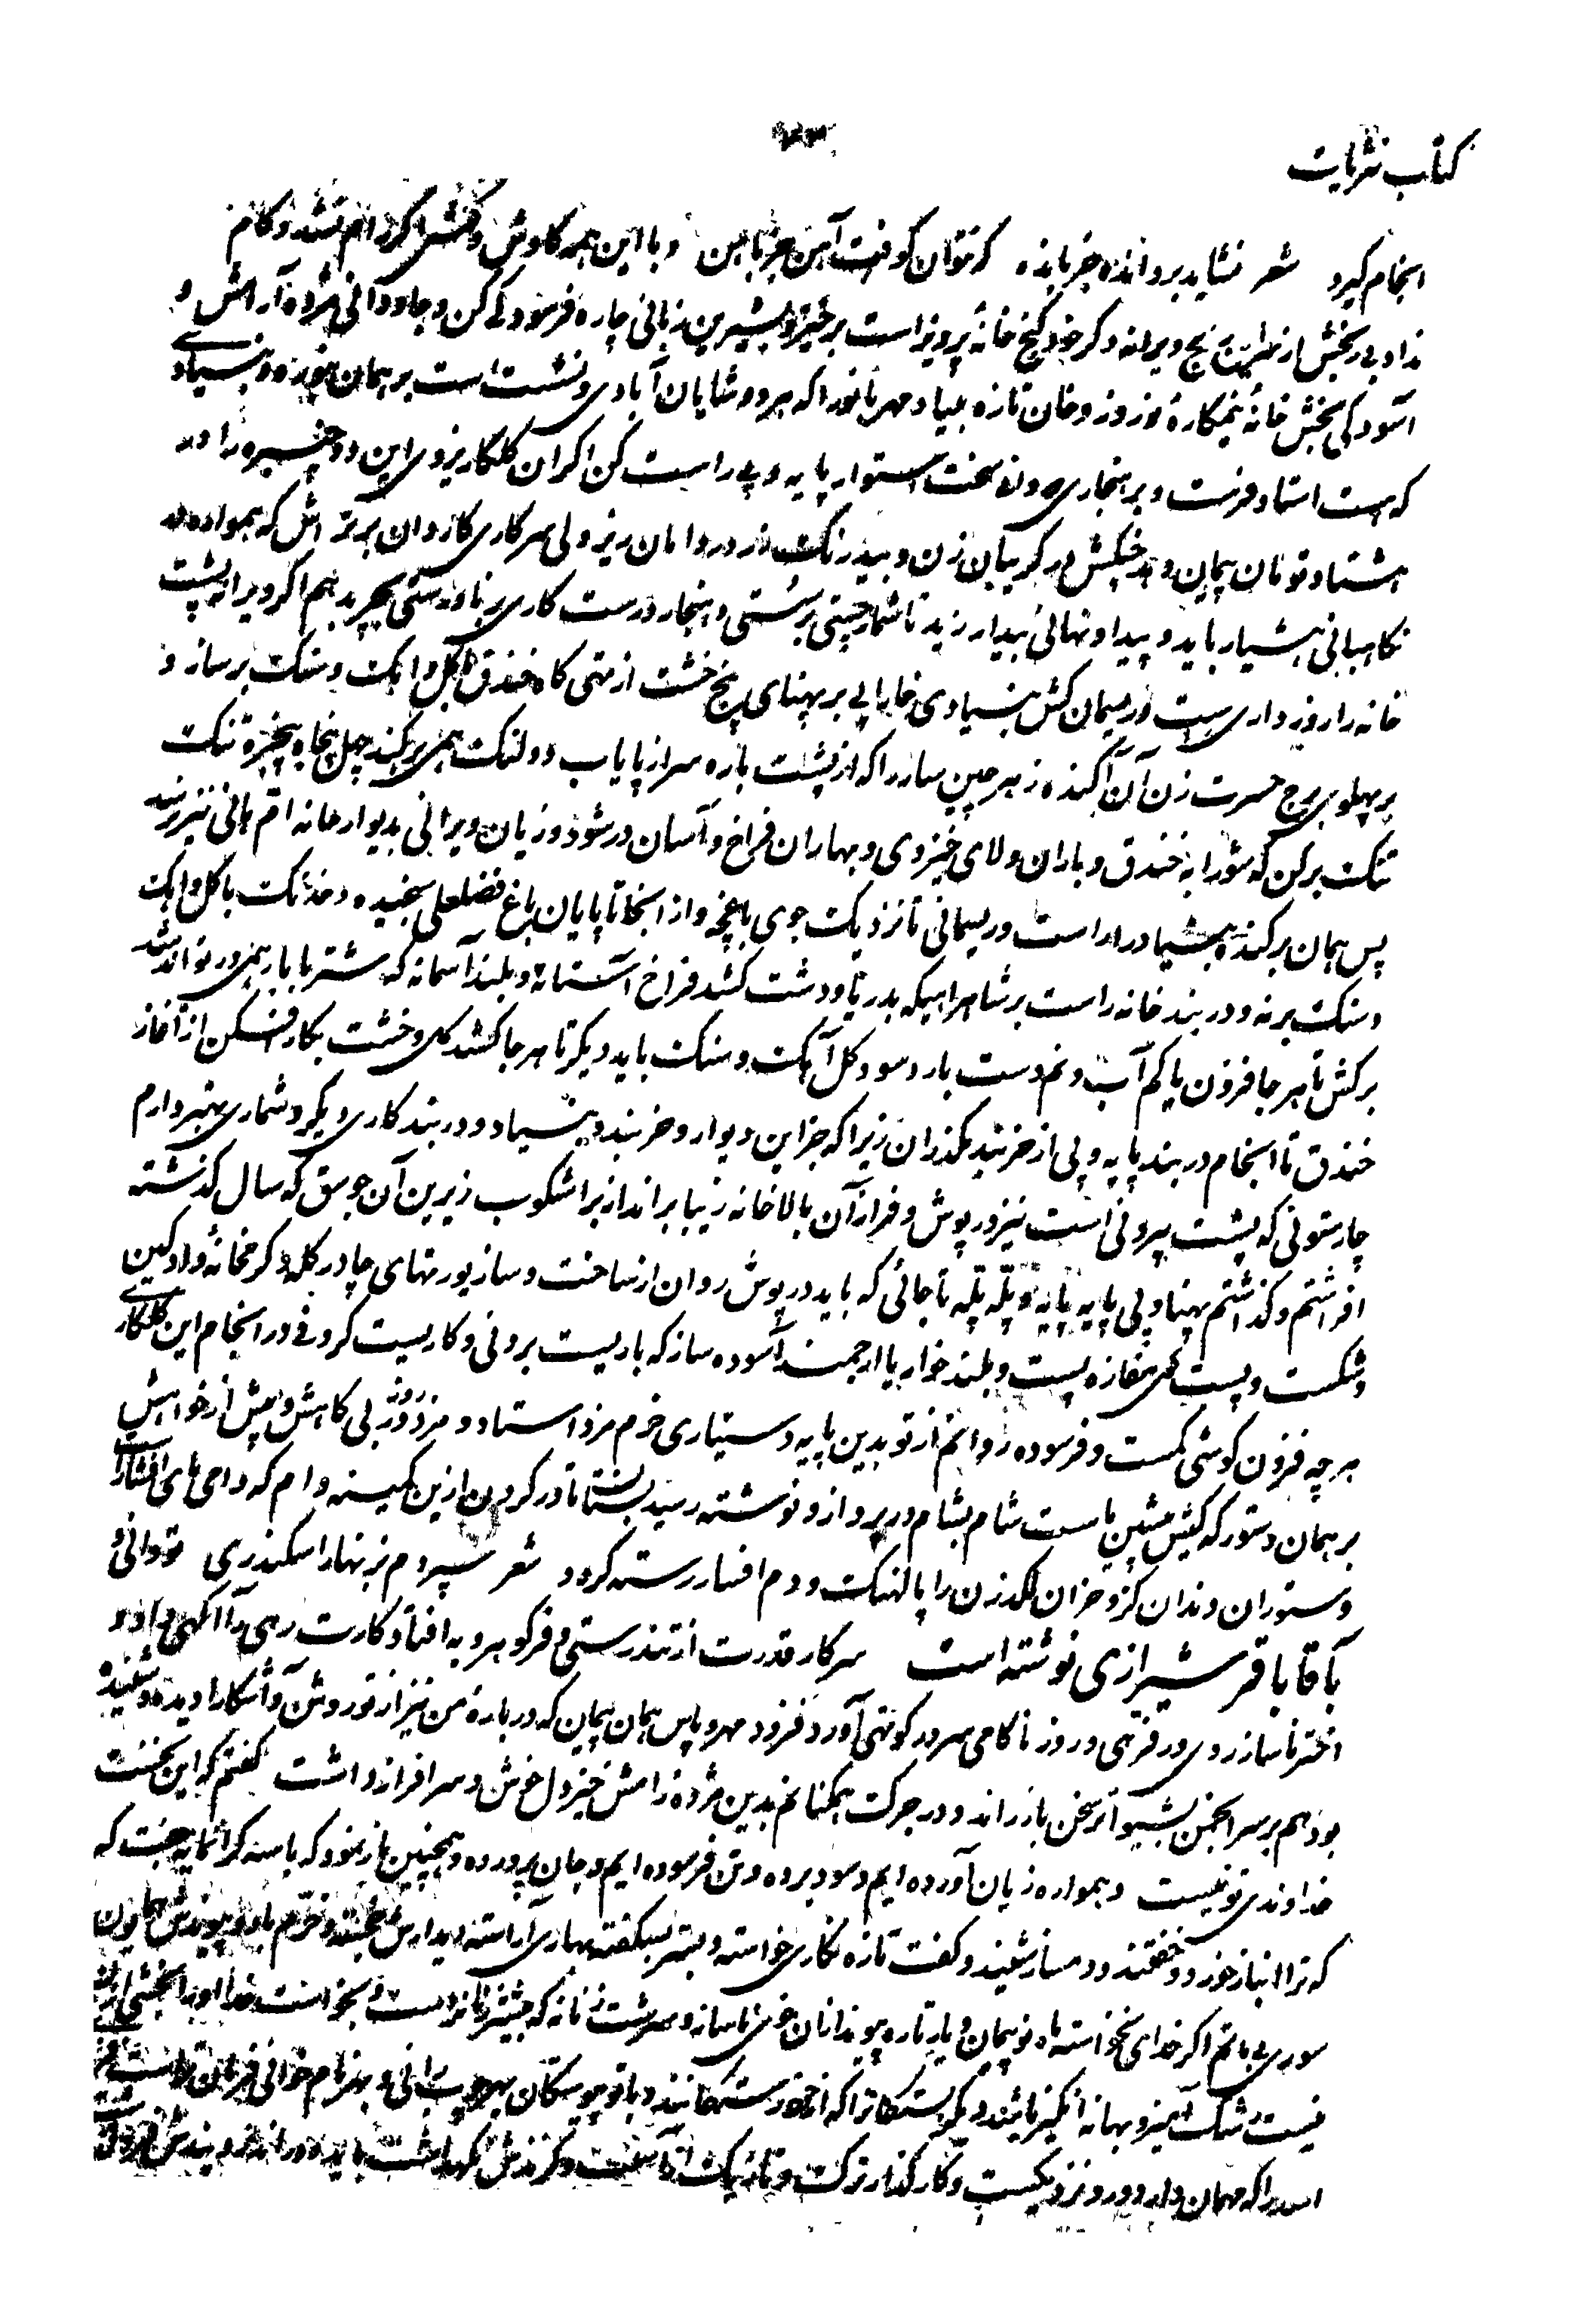 کتاب نثریات
انجام گیرد شعر نشاید برد انده جز بانده گر نتوان کوفت آهن جز بآهن و با این همه کاوش و کنش اگر رام نشد و کام
نداد بی رنجش از خداوند گنج ویرانه و گر خود گنج خانهٔ پرویز است برخیز و بشیرین زبانی چاره فرسودگی کن و جاودانی مژده آرامش و
آسودگی بخش خانهٔ نیمکارهٔ نوروز و خان تازه بنیاد مهربانو را که هر دو شایان آبادی و نشست است بر همان هنوزه و بنیادی
که هست استاد فرست و بر هنجاری دونه سخت استوار پایه و پی راست کن اگر ان گلکار یزدی این دو چنبره را در
هشتاد تومان پیمان و بند خپکش در گریبان زن و بیدرنگ زر در دامان ریز ولی سرکاری کاردان برتراش که همواره در
نگاهبانی هشیار باید و پیدا و نهانی بیدار زید تا شمار چستی بر سستی و هنجار درست کاری بر نادرستی نچربد هم اگر ویرانه پشت
خانه را روزداری هست و ریسمان کش بنیادی خارایی بر پهنای پنج خشت از تهی گاه خندق با گل و آهک و سنگ برساز و
بر پهلوی برج حسرت زن آن آکنده زهر چین سازد را که از پشت باره سر از پایاب دو لنگ همی برکند چل پنجاه پنجره تنگ
تنگ برکن که شورابه خندق و باران و لای خیزدی و بهاران فراخ و آسان در شود و زیان ویرانی بدیوار خانه ام هانی نیز نرسد
پس همان برکنده و بنیاد را راست و ریسمانی تا نزدیک جوی باغچه و از انجا تا پایان باغ فضلعلی سنجیده و خدنگ با گل و آهک
و سنگ برنه و دربند خانه راست بر شاهراهیکه بدریا و دشت کشد فراخ آستانه و بلند آسمانه که شتر با بار همی در تواند شد
برکش تا هر جا فزون یا کم آب و نم دست بارد سود گل آهک و سنگ باید دیگر تا هر جا کشد گل و خشت بکار افکن از آغاز
خندق تا انجام دربند پایه و پی از خرند بگذران زیرا که جز این دیوار و خرند و بنیاد و دربند کاری دیگر و شماری مهتر دارم
چارستونی که پشت بیرونی است نیز در پوش و فراز آن بالا خانه زیبا برانداز بر اشکوب زیرین آن جوسق که سال گذشته
افراشتم و گذاشتم پهنا و پی پایه پایه و پله پله تا جائی که باید در پوش روان از ساخت و ساز یورتهای چادر گله و گرمخانهٔ ولادگین
و شکست و پست گی مغازه پست و بلند خوابه یا ارجمند آسوده ساز که باریست برونی و کاریست کردنی در انجام این گلکاری
هر چه فزون کوشی کمست و فرسوده روانم از تو بدین پایه دستیاری خرم مزد استاد و مزدور روز روز بی کاهش و پیش از خواهش
بر همان دستور که کیش مشین ماست شام بشام در پرداز و نوشته رسید بستان تا در گردون ازین کمینه وام که دامی های افشار
و ستوران دندان گز و خزان لگدزن را پالهنگ و دم افسار رسته گردد شعر سپردم بزنهار اسکندری تو دانی و
بآقا باقر شیرازی نوشته است سرکار قدرت از تندرستی و فر گوهر و به افتاد کارت رهی را آگهی داد و
اختر ناساز روی در فرهی و روز ناکامی سر در کوتهی آورد فزود مهر و پاس همان پیمان که دربارهٔ من نیز از تو روشن و آشکارا دیده و شنیده
بود هم بر سر انجمن بشیوا تر سخن باز راند و در جرگت همکنانم بدین مژدهٔ رامش خیز دل خوش و سرافراز داشت گفتم که این نخست
خداوندی تو نیست و همواره زیان آورده ایم و سود برده و تن فرسوده ایم و جان پرورده و همچنین باز نمود که با سه گرانمایه جفت که
که ترا انباز خورد و خفتند و دمساز شنید و گفت تازه نگاری خواسته و بستر بشکفته بهاری آراسته دیدارش خجسته و خرم باد و پیوندش همایون
سور بی ماتم اگر خدای نخواسته ماه نو پیمان و یار تازه پیوند انان خوی ناساز و سرشت زنانه که بیشتر زنان راست بخواست خدا
نیست رشک آمیز و بهانه انگیز باشد دیگر بستگان ترا که همانند و با تو پیوستگان بهر چوب رانی و بهر نام خوانی فرمان
اسد را که مهمان دار دور و نزدیکست و کارگذار ترک و تاژیک